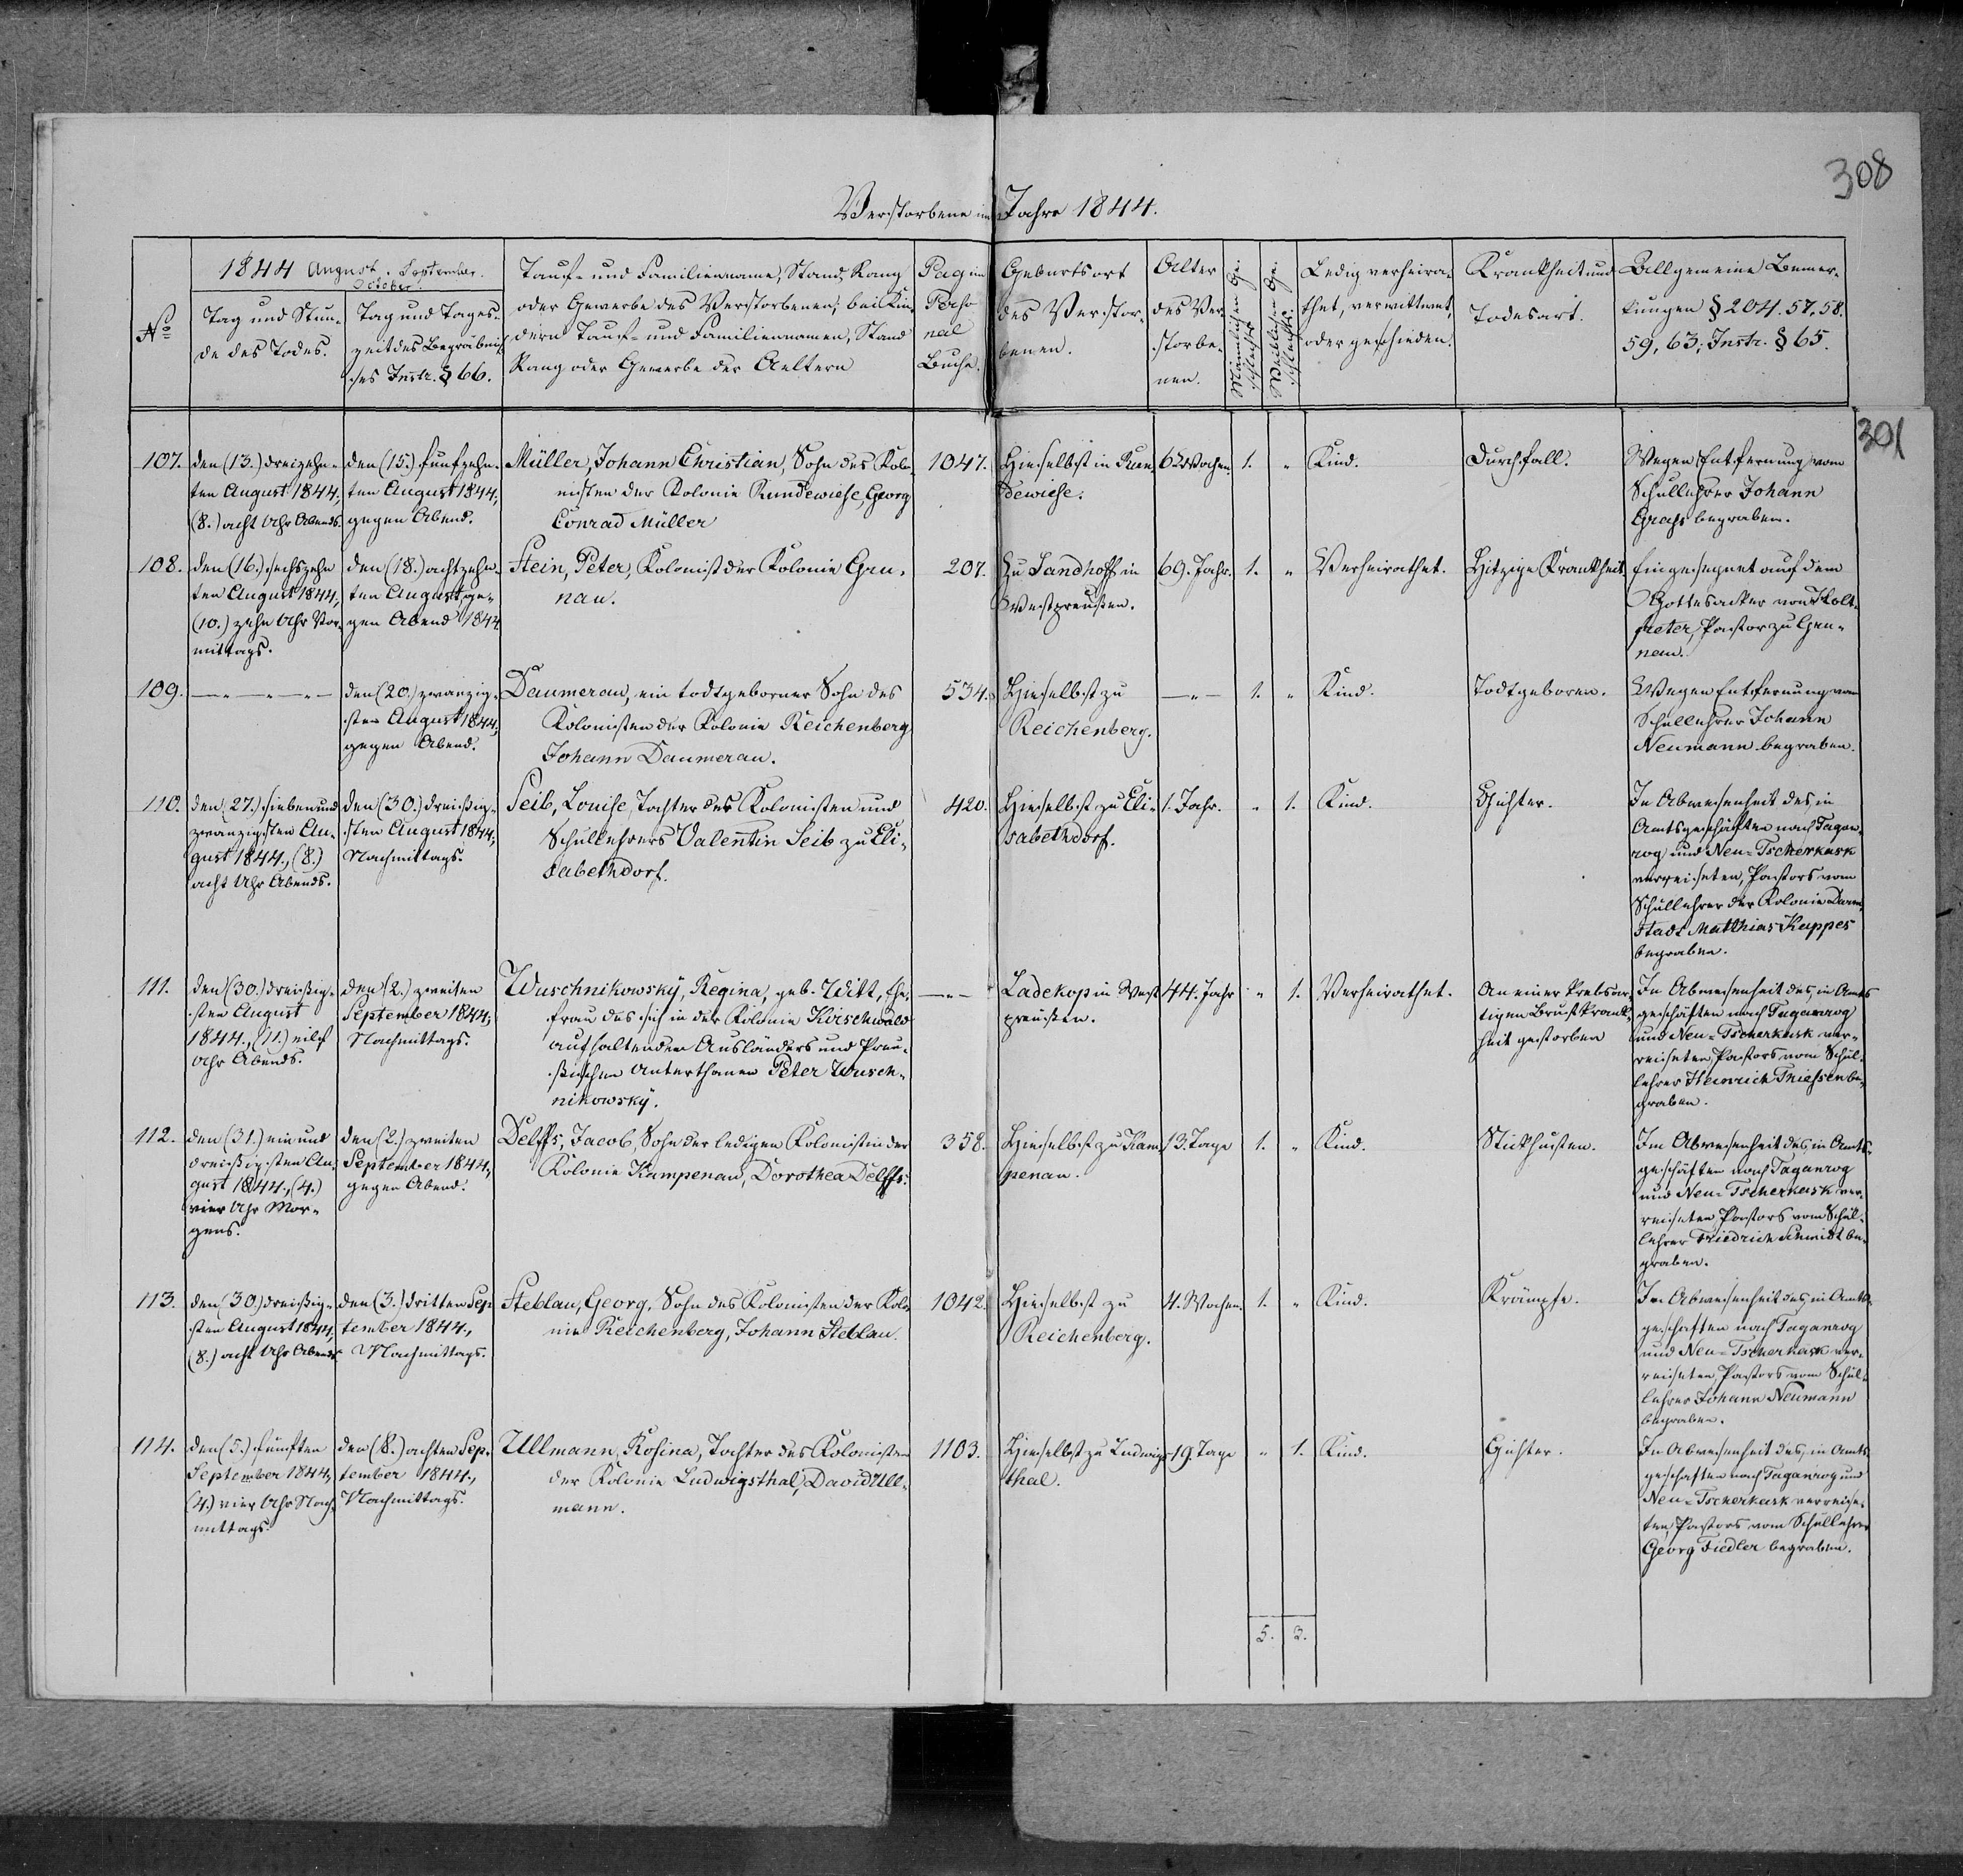 308
Verstorbene im Jahre 1844.
301
№
1844 August. September.
October.
Tag und Stun-
de des Todes.
Tag und Tages-
zeit des Begräbnis-
ses Instr. § 66.
Tauf- und Familienname, Stand, Rang
oder Gewerbe des Verstorbenen; bei Kin-
dern Tauf- und Familiennamen, Stand
Rang oder Gewerbe der Aeltern
Pag im
Perso
nal
Buche.
Geburtsort
des Verstor-
benen.
Alter
des Ver-
storbe-
nen.
Männlichen Ge-
schlechts
Weiblichen Ge-
schlechts.
Ledig verheira-
thet, verwittwet,
oder geschieden.
Krankheit und
Todesart.
Allgemeine Bemer-
kungen § 204. 57, 58.
59, 63; Instr. § 65.
107.
den (13.) dreizehn-
ten August 1844,
(8.) acht Uhr Abends.
den (15.) funfzehn-
ten August 1844,
gegen Abend.
Müller, Johann Christian, Sohn des Kolo-
nisten der Kolonie Rundewiese, Georg
Conrad Müller
1047.
Hieselbst in Run-
dewiese.
6 Wochen.
1.
"
Kind.
Durchfall.
Wegen Entfernung vom
Schullehrer Johann
begraben.
108.
den (16.) sechszehn
ten August 1844,
(10.) zehn Uhr Vor-
mittags.
den (18.) achtzehn-
ten August, ge-
gen Abend 1844
Stein, Peter, Kolonist der Kolonie Gru-
nau.
207.
Zu Sandhoff in
Westpreußen.
69. Jahr.
1.
"
Verheirathet.
Hitzige Krankheit
Eingesegnet auf dem
Gottesacker von Holt-
freter, Pastor zu Gru-
nau.
109.
—"—"—"—
den (20.) zwanzig-
sten August 1844,
gegen Abend.
Daumerau, ein todtgeborner Sohn des
Kolonisten der Kolonie Reichenberg
Johann Daumerau.
534.
Hieselbst zu
Reichenberg.
—"—
1.
"
Kind.
Todtgeboren.
Wegen Entfernung vom
Schullehrer Johann
Neumann begraben.
110.
den (27.) sieben und
zwanzigsten Au-
gust 1844., (8.)
acht Uhr Abends.
den (30.) dreißig-
sten August 1844,
Nachmittags.
Seib, Louise, Tochter des Kolonisten und
Schullehrers Valentin Seib zu Eli-
sabethdorf.
420.
Hieselbst zu Eli-
sabethdorf.
1. Jahr.
"
1.
Kind.
Gichter.
In Abwesenheit des, in
Amtsgeschäften nach Tagan-
rog und Neu-Tscherkask
verreiseten, Pastors vom
Schullehrer der Kolonie Darm-
stadt Matthias Kappes
begraben.
111.
den (30.) dreißig-
sten August
1844., (11.) eilf
Uhr Abends.
den (2.) zweiten
September 1844,
Nachmittags.
Wuschnikowsky, Regina, geb. Witt, Ehe-
frau des sich in der Kolonie Kirschwald
aufhaltenden Ausländers und Preu-
ßischen Unterthanen Peter Wusch-
nikowsky.
—"—
Ladekop in West
preußen.
44. Jahr
"
1.
Verheirathet.
An einer krebsar-
tigen Brustkrank-
heit gestorben
In Abwesenheit des, in Amts
geschäften nach Taganrog
und Neu-Tscherkask ver-
reiseten Pastors vom Schul-
lehrer Heinrich Thiessen be-
graben.
112.
den (31.) ein und
dreißigsten Au-
gust 1844., (4.)
vier Uhr Mor-
gens.
den (2.) zweiten
September 1844,
gegen Abend.
Delffs, Jacob, Sohn der ledigen Kolonistin der
Kolonie Kampenau, Dorothea Delffs.
358.
Hieselbst zu Kam-
penau.
13. Tage
1.
"
Kind.
Stickhusten.
In Abwesenheit des, in Amts-
geschäften nach Taganrog
und Neu-Tscherkask ver-
reiseten Pastors vom Schul-
lehrer Friedrich Schmidt be-
graben.
113.
den (30.) dreißig-
sten August 1844,
(8.) acht Uhr Abends
den (3.) dritten Sep-
tember 1844.,
Nachmittags.
Steblau, Georg, Sohn des Kolonisten der Kolo-
nie Reichenberg, Johann Steblau.
1042.
Hieselbst zu
Reichenberg.
4. Wochen.
1.
"
Kind.
Krämpfe.
In Abwesenheit des, in Amts-
geschäften nach Taganrog
und Neu-Tscherkask ver-
reiseten Pastors vom Schul-
lehrer Johann Neumann
begraben.
114.
den (5.) fünften
September 1844,
(4.) vier Uhr Nach-
mittags.
den (8.) achten Sep-
tember 1844.,
Nachmittags.
Ullmann, Rosina, Tochter des Kolonisten
der Kolonie Ludwigsthal, David Ull-
mann.
1103.
Hieselbst zu Ludwigs-
thal.
19. Tage
"
1.
Kind.
Gichter.
In Abwesenheit des, in Amts-
geschäften nach Taganrog und
Neu-Tscherkask verreise-
ten, Pastors vom Schullehrer
Georg Fiedler begraben.
5.
3.